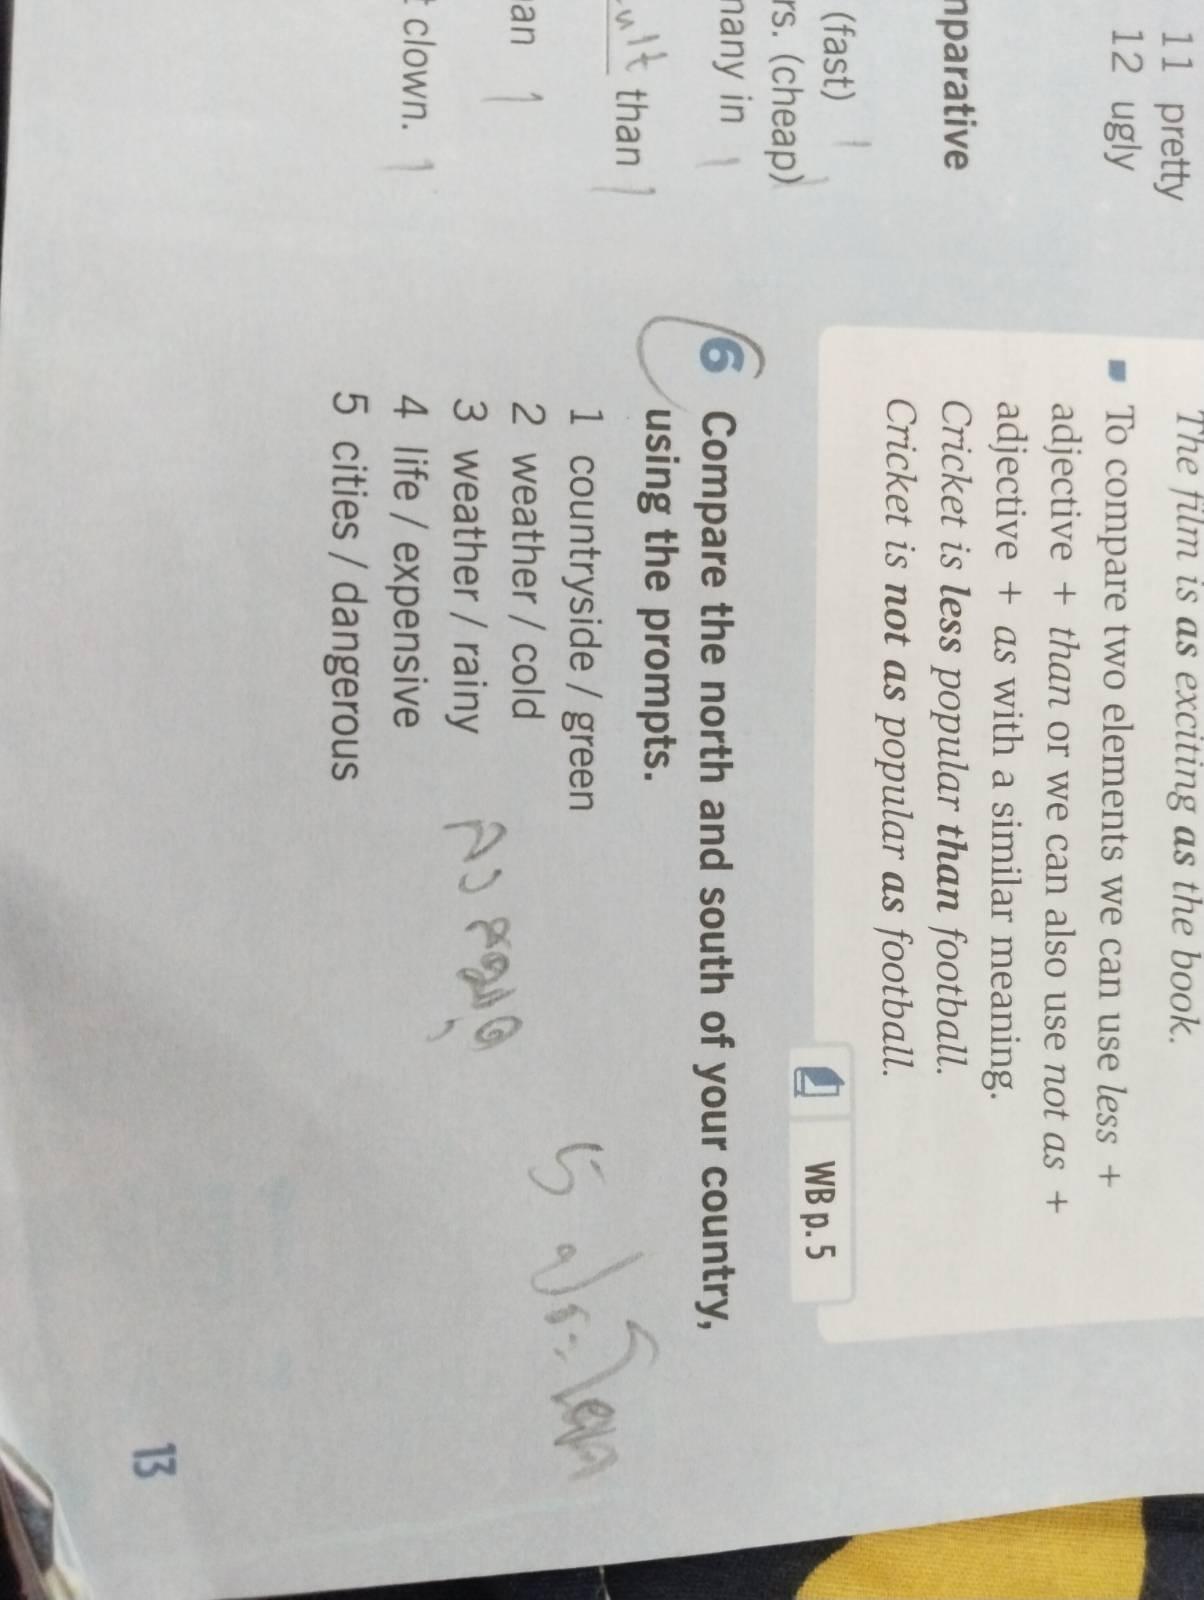 11 pretty
12 ugly
mparative
(fast)
rs. (cheap)
many in
ult than
an
t clown.
The film is as exciting as the book.
To compare two elements we can use less +
adjective + than or we can also use not as +
adjective + as with a similar meaning.
Cricket is less popular than football.
Cricket is not as popular as football.
WB p. 5
6 Compare the north and south of your country,
using the prompts.
1 countryside / green
2 weather / cold
3 weather / rainy
4 life / expensive
5 cities / dangerous
13